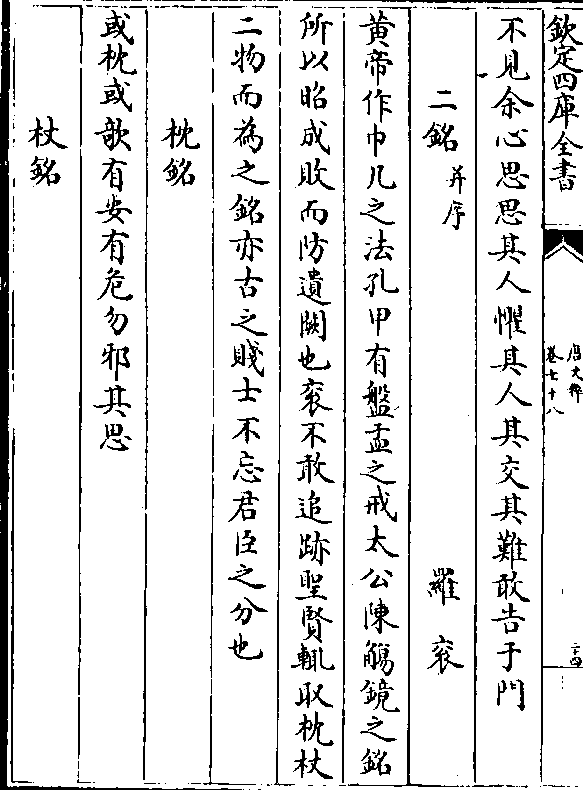 欽定四庫全書
唐文粹
卷七十八
二十四
不見余心思思其人懼其人其交其難敢告于門
二銘 并序 羅衮
黃帝作巾几之法孔甲有盤盂之戒太公陳觴鏡之銘
所以昭成敗而防遺闕也衮不敢追跡聖賢輒取枕杖
二物而為之銘亦古之賤士不忘君臣之分也
枕銘
或枕或欹有安有危勿邪其思
杖銘